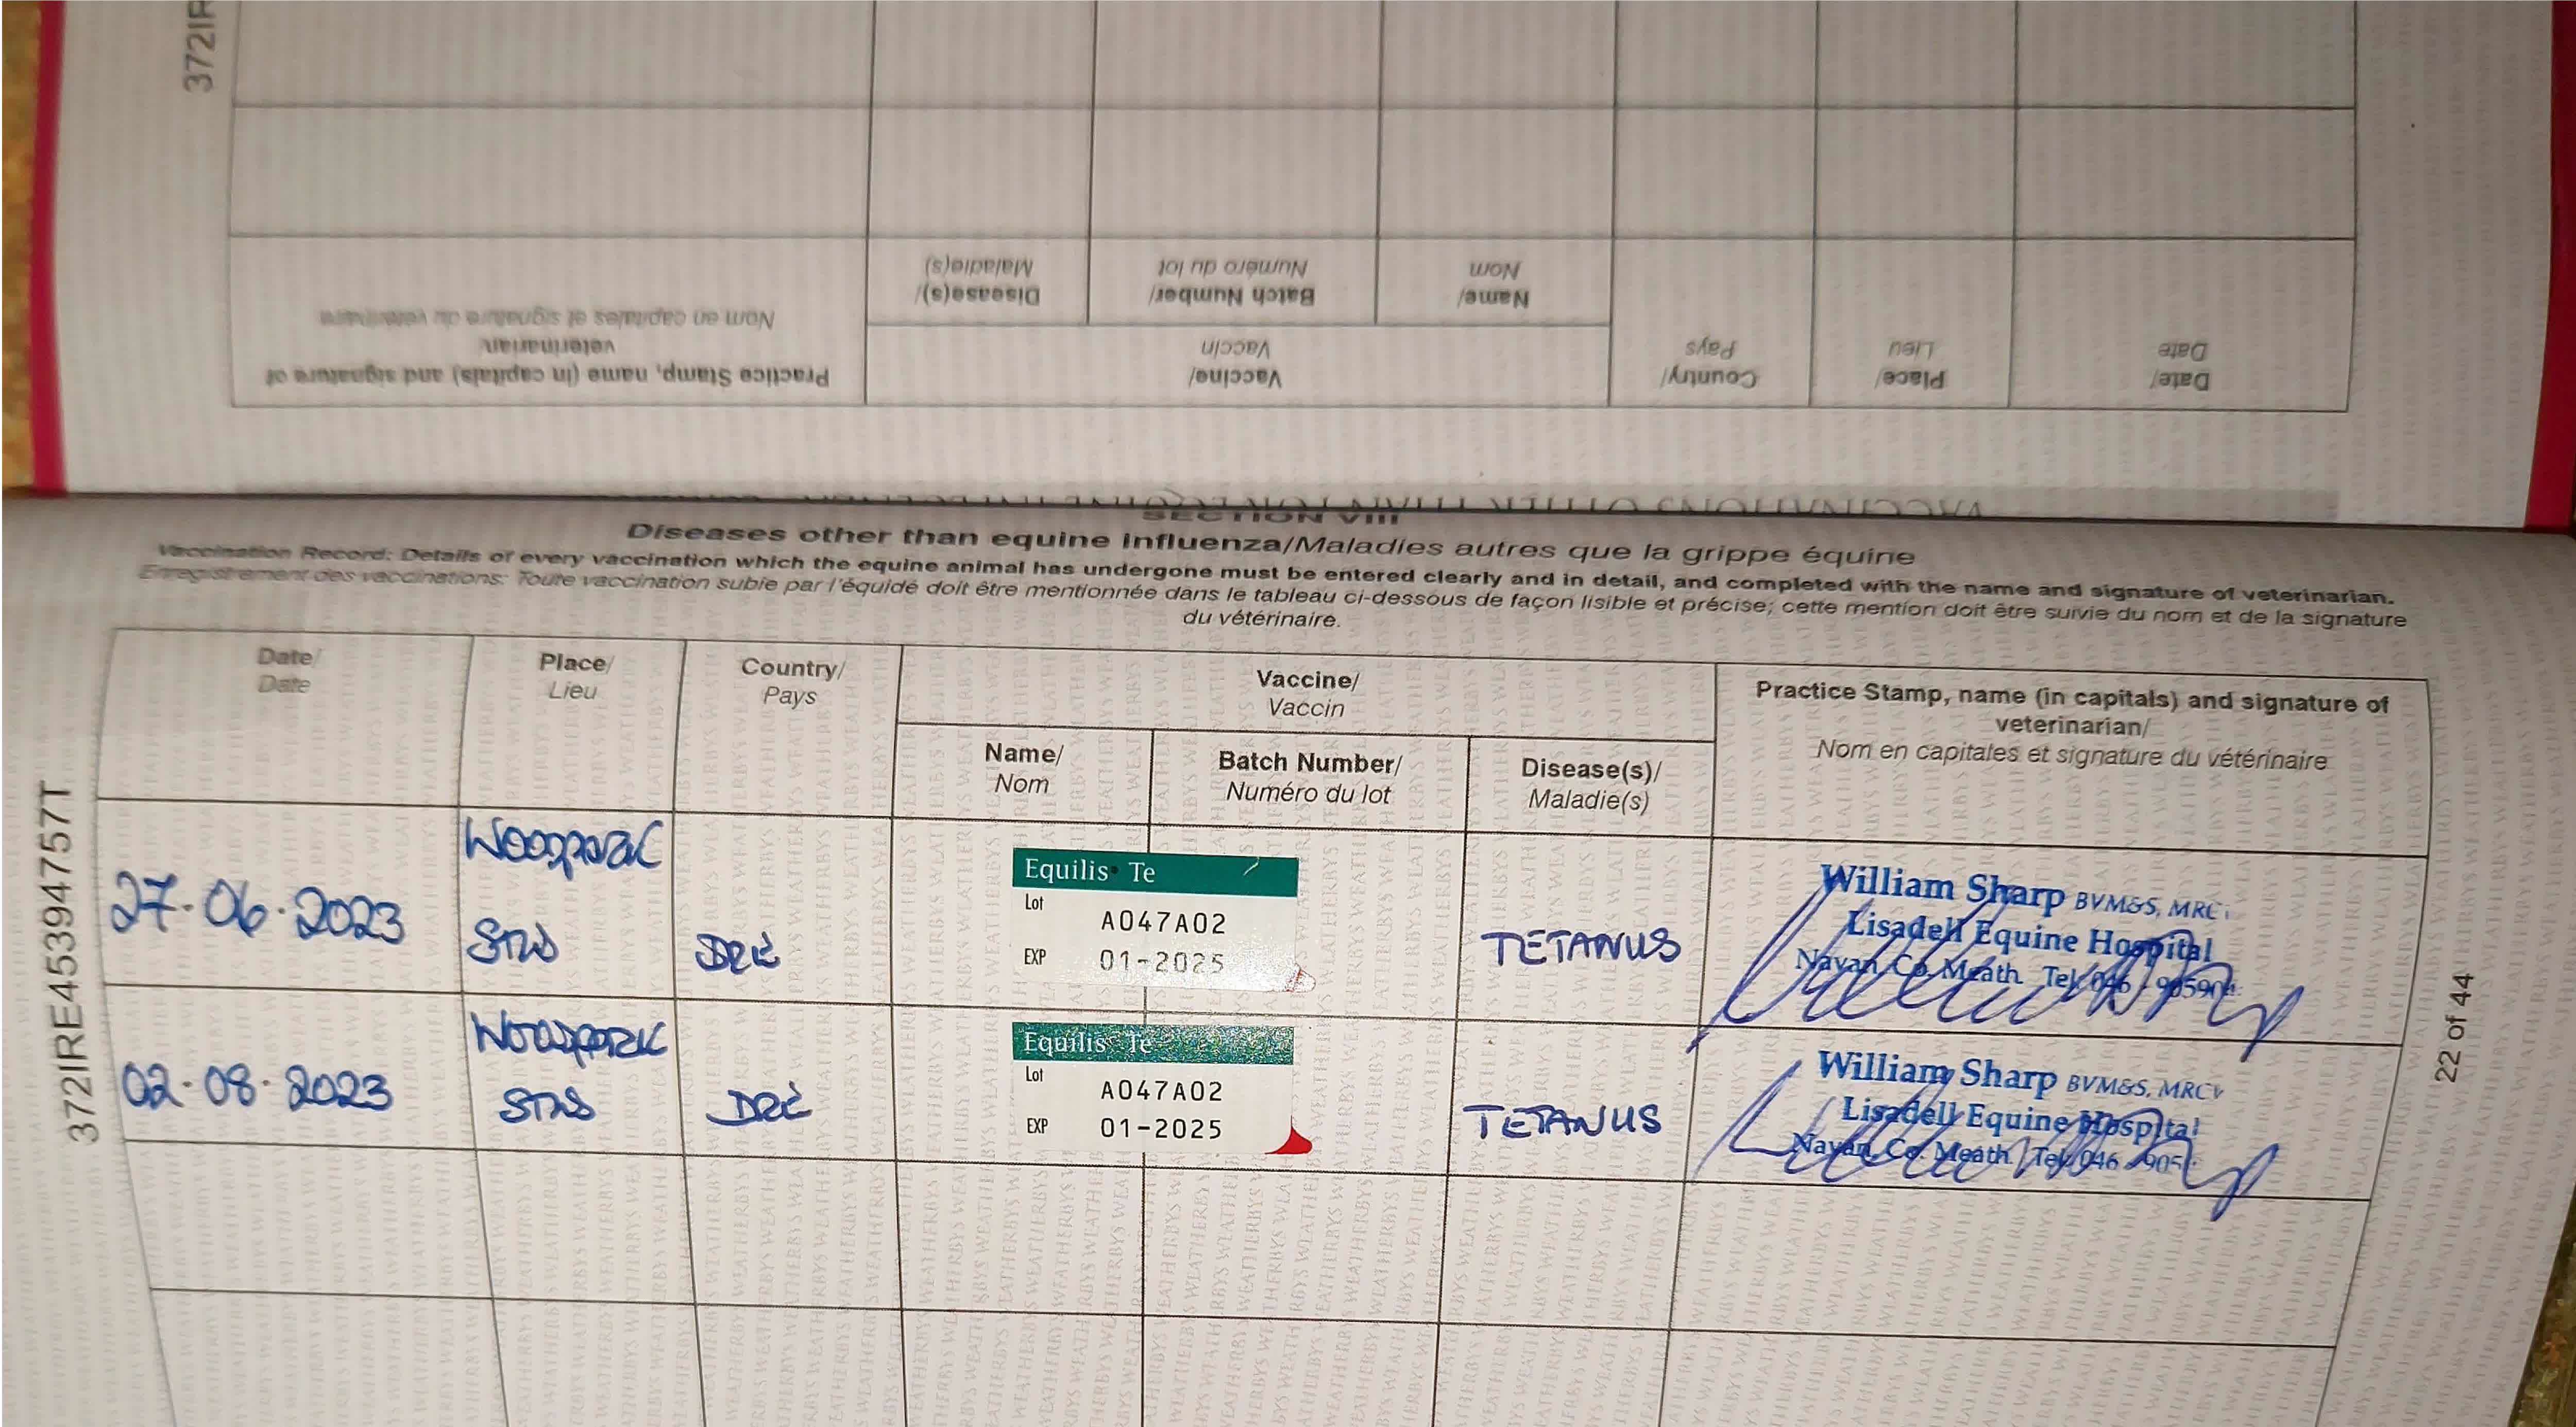 372IR
Practice Stamp, name (in capitals) and signature of
veterinarian/
Nom en capitales et signature du vétérinaire
Disease(s)/
Maladie(s)
Batch Number/
Numéro du lot
Name/
Nom
Vaccine/
Vaccin
Country/
Pays
Place/
Lieu
Date/
Date
SECTION VIII
Diseases other than equine influenza/Maladies autres que la grippe équine
Vaccination Record: Details of every vaccination which the equine animal has undergone must be entered clearly and in detail, and completed with the name and signature of veterinarian.
Enregistrement des vaccinations: Toute vaccination subie par l'équidé doit être mentionnée dans le tableau ci-dessous de façon lisible et précise; cette mention doit être suivie du nom et de la signature
du vétérinaire.
Date/
Date
Place/
Lieu
Country/
Pays
Vaccine/
Vaccin
Name/
Nom
Batch Number/
Numéro du lot
Disease(s)/
Maladie(s)
Practice Stamp, name (in capitals) and signature of
veterinarian/
Nom en capitales et signature du vétérinaire
27.06.2023
Woodpark
Equilis Te
Lot
A047A02
EXP
01-2025
TETANUS
William Sharp BVM&S,
Lisadell Equine Hospital
Navan, Co. Meath. Tel: 046 -
02.08.2023
WOODPARK
Equilis Te
Lot
A047A02
EXP
01-2025
TETANUS
William Sharp BVM&S,
Lisadell Equine Hospital
Navan, Co. Meath. Tel: 046 -
372IRE45394757T
22 of 44